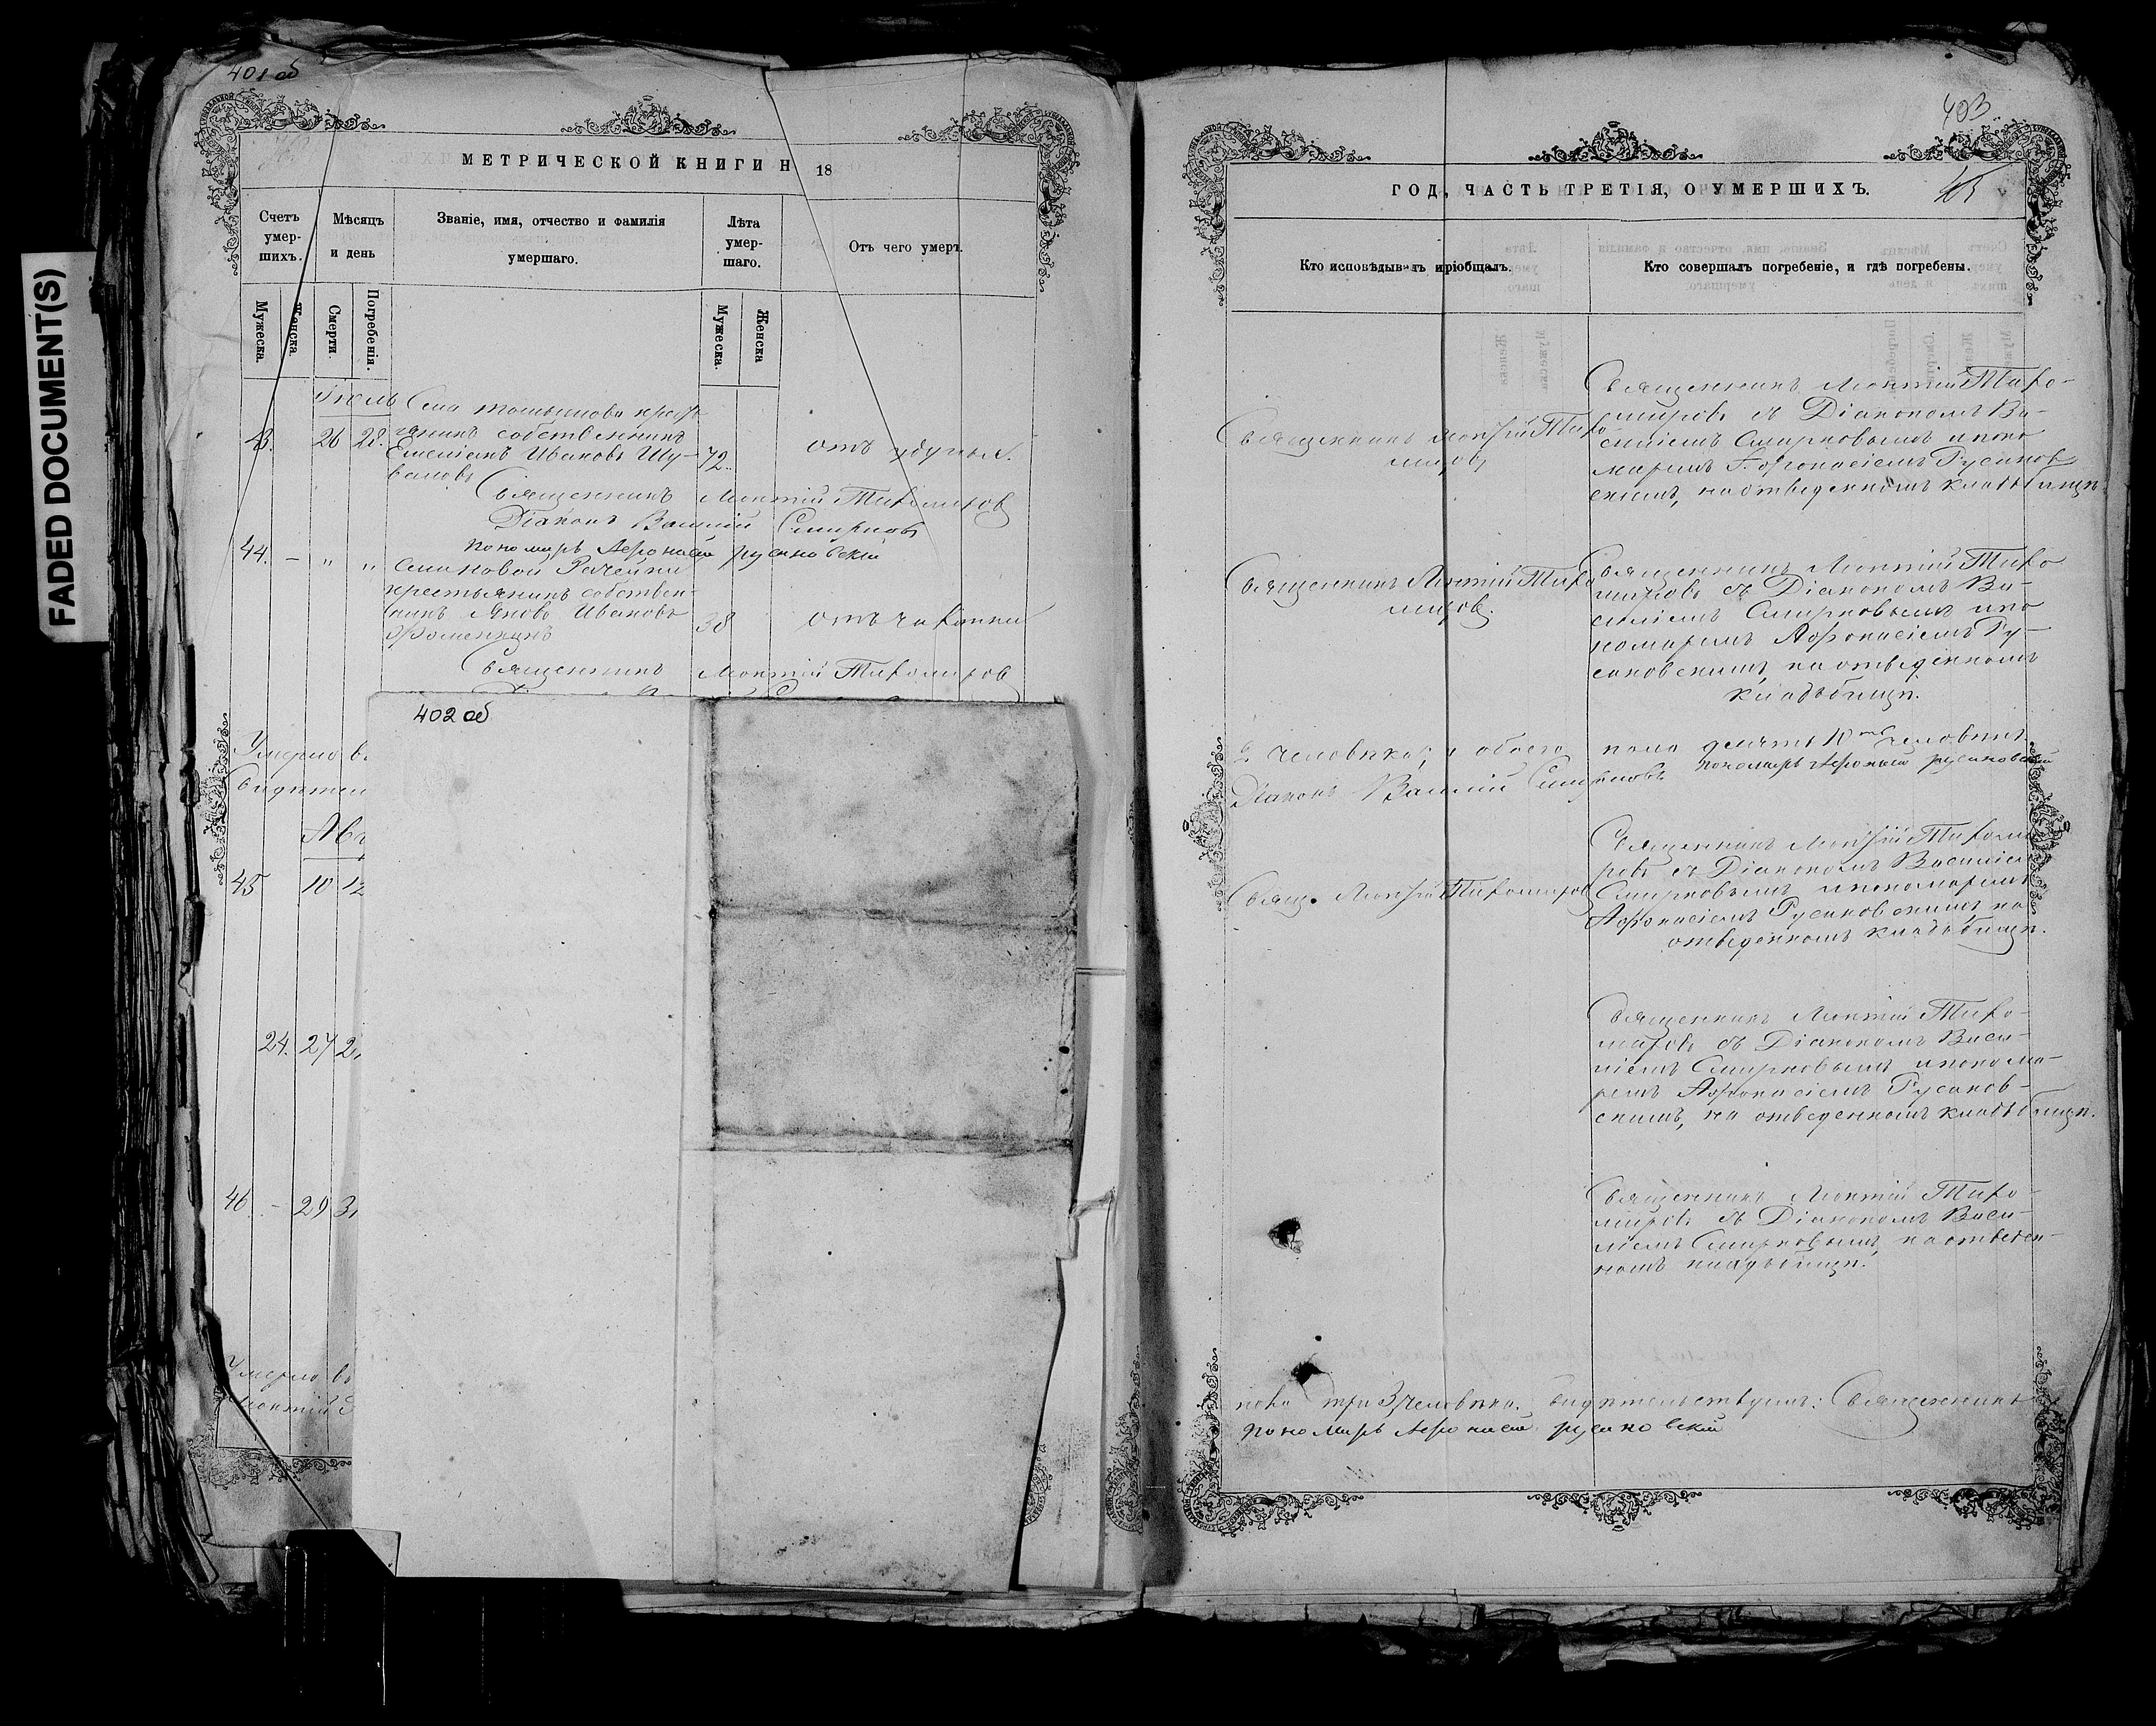 FADED DOCUMENT(S)
401 об
МЕТРИЧЕСКОЙ КНИГИ Н 18
Счетъ умер-шихъ.
Мѣсяцъ и день
Званіе, имя, отчество и фамилія умершаго.
Лѣта умер-шаго.
Отъ чего умеръ.
Мужеска.
Женска.
Смерти.
Погребенія.
Мужеска
Женска
Іюль
43. 26 28.
собственникъ
Ивановъ Шу-
валовъ
72.
отъ удушья.
Священникъ Леонтій Тихомировъ
Діаконъ Василій Смирновъ
пономарь Афонасій русановскій
44. — " "
крестьянинъ собствен-
никъ Яковъ Ивановъ
38
отъ чахотки
Священникъ Леонтій Тихомировъ
402 об
Умерло в
Свидѣтел
Авг
45 10 12
24. 27 2
46. - 29 3
Умерло въ
Леонтій
403
ГОД, ЧАСТЬ ТРЕТІЯ, О УМЕРШИХЪ.
Кто исповѣдывалъ и пріобщалъ.
Кто совершалъ погребеніе, и гдѣ погребены.
Священникъ Леонтій Тихо
мировъ
Священникъ Леонтій Тихо-
мировъ съ Діакономъ Ва-
силіемъ Смирновымъ и поно
маремъ Афонасіемъ Русанов
скимъ, на отведенномъ кладбищѣ
Священникъ Леонтій Тихо
мировъ.
Священникъ Леонтій Тихо
мировъ съ Діакономъ Ва-
силіемъ Смирновымъ и по
номаремъ Афонасіемъ Ру-
сановскимъ, на отведенномъ
кладбищѣ.
2 человѣка; а обоего пола девять 10 человѣкъ
Діаконъ Василій Смирновъ пономарь Афонасій русановскій
Свящ. Леонтій Тихомировъ
Священникъ Леонтій Тихоми
ровъ съ Діакономъ Василіем
Смирновымъ и пономаремъ
Афонасіемъ Русановскимъ на
отведенномъ кладбищѣ.
Священникъ Леонтій Тихо-
мировъ съ Діакономъ Васи-
ліемъ Смирновымъ и понома-
ремъ Афонасіемъ Русанов-
скимъ, на отведенномъ кладбищѣ.
Священникъ Леонтій Тихо-
мировъ съ Діакономъ Васи-
ліемъ Смирновымъ, на отведен-
номъ кладбищѣ.
пола три 3 человѣка. Свидѣтельствуемъ: Священникъ
пономарь Афонасій русановскій